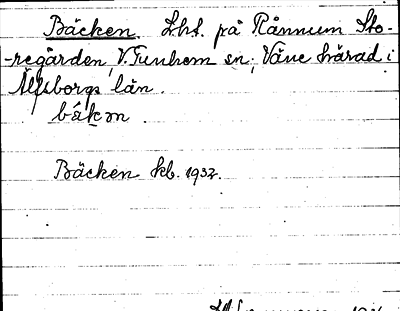 Bäcken. Lht. på Rånnum Sto-
-regården, V. Tunhem sn, Väne härad i
Älfsborgs län.
Bäcken kb. 1932.